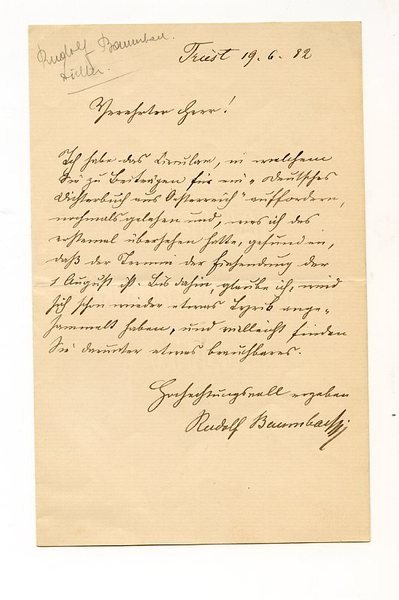 Rudolf Baumbach.
Dichter.
Triest 19. 6. 82
Verehrter Herr!
Ich habe das Circular, in welchem
Sie zu Beiträgen für ein "Deutsches
Dichterbuch aus Oesterreich" auffordern,
nochmals gelesen und, was ich das
erstemal übersehen hatte, gefunden,
daß der Termin der Einsendung der
1 August ist. Bis dahin, glaube ich, wird
sich schon wieder etwas Lyrik ange-
sammelt haben, und vielleicht finden
Sie darunter etwas brauchbares.
Hochachtungsvoll ergeben
Rudolf Baumbach